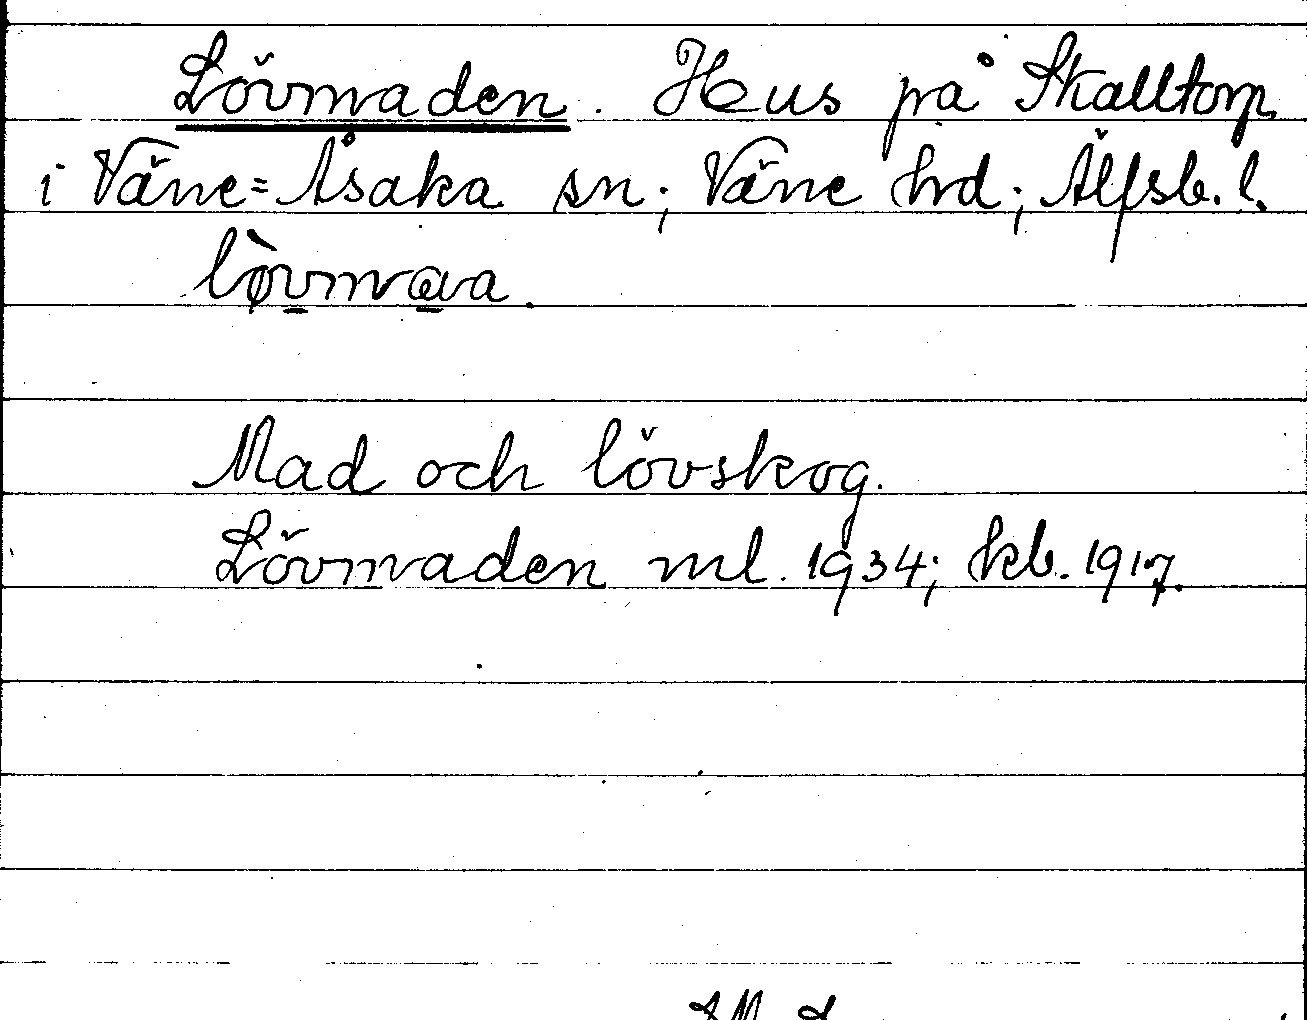 Lövmaden. Hus på Skalltorp
i Väne=Åsaka sn; Väne hd; Älfsb. l.
lø̀vmαa.
Mad och lövskog.
Lövmaden ml. 1934; kb. 1917.